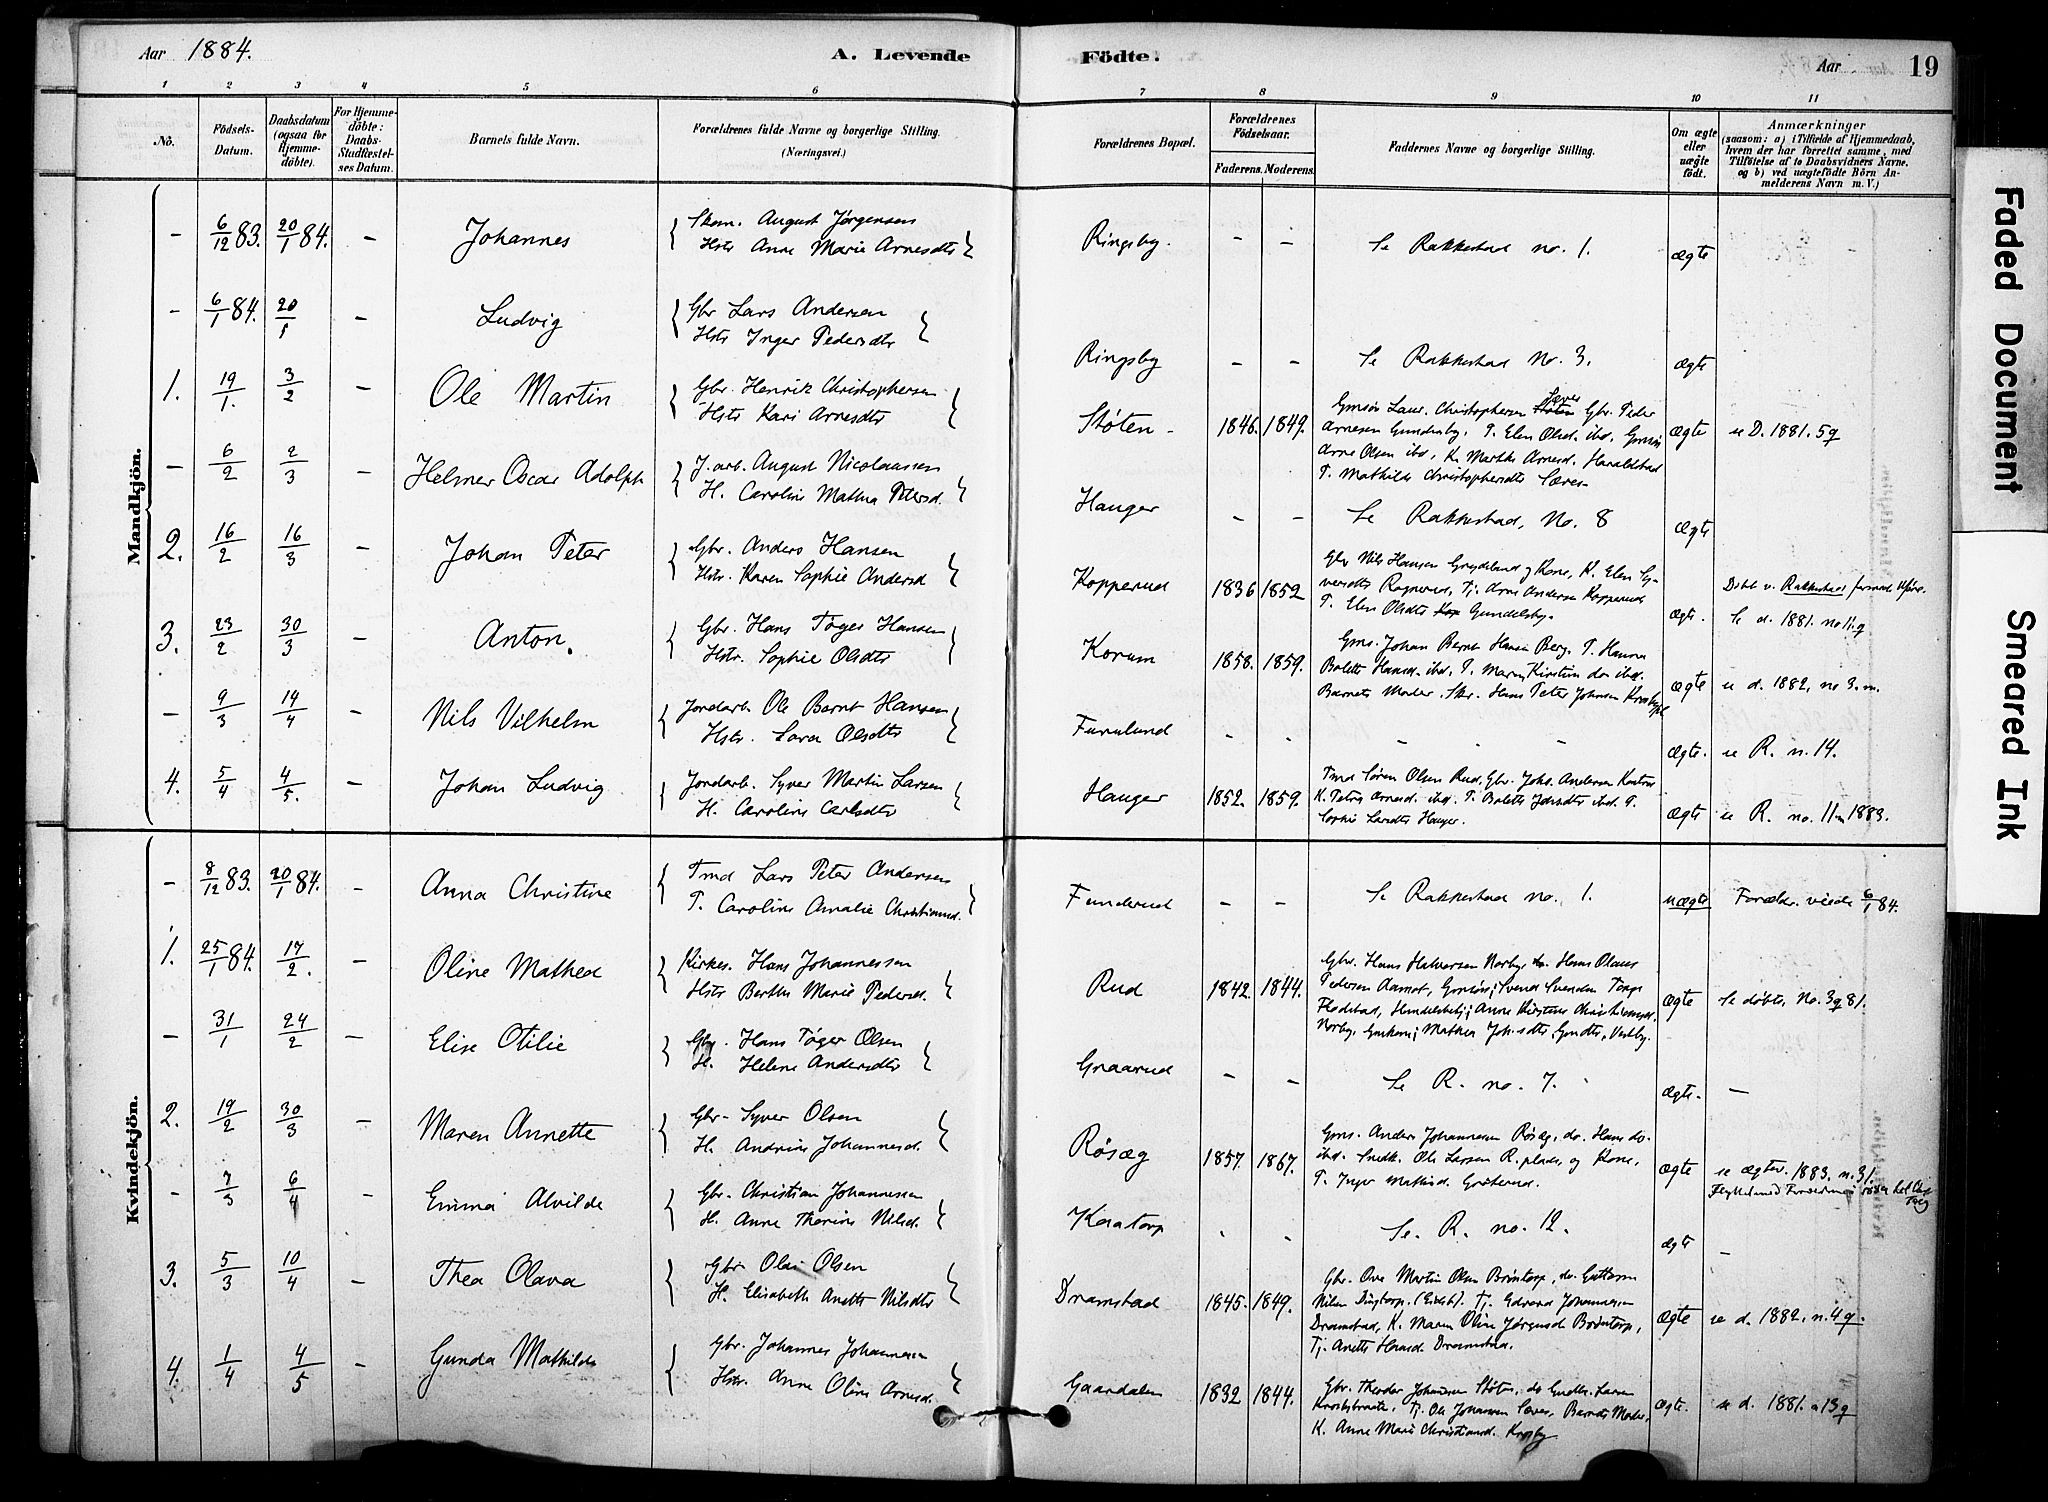 Aar 1884.
A. Levende Födte.
Aar
19
1 2 3 4 5 6 7 8 9 10 11
No.
Födsels-Datum.
Daabsdatum (ogsaa for Hjemme-döbte).
For Hjemme-döbte: Daabs-Stadfæstelses Datum.
Barnets fulde Navn.
Forældrenes fulde Navne og borgerlige Stilling. (Næringsvei.)
Forældrenes Bopæl.
Forældrenes Födselsaar.
Faderens. Moderens.
Faddernes Navne og borgerlige Stilling.
Om ægte eller uægte födt.
Anmærkninger
(saasom: a) i Tilfælde af Hjemmedaab, hvem der har forrettet samme, med Tilföielse af to Daabsvidners Navne, og b) ved uægtefödte Börn Anmelderens Navn m. V.)
Mandkjön.
- 6/12 83. 20/1 84. - Johannes
Skom. August Jørgensen
Hstr Anne Marie Arnesdtr
Ringsby. - - Se Rakkestad no. 1. ægte
- 6/1 84. 20/1 - Ludvig
Gbr Lars Andersen
Hstr Inger Pedersdtr
Ringsby - - Se Rakkestad No. 3. ægte
1. 19/1. 3/2 - Ole Martin
Gbr. Henrik Christophersen
Hstr Kari Arnesdtr
Støten - 1846. 1849. ægte
Gbr. Peder
Arnesen Gundersby. P. Elen Olsd. ibd.
Arne Olsen ibd, K. Marthe Arnesd. Haraldstad
P. Mathilde Christophersdtr
se D. 1881. 5 q
- 6/2 2/3 - Helmer Oscar Adolph
J.arb. August Nicolaisen
H. Caroline Mathea Petersd.
Hauger - - Se Rakkestad, No. 8 ægte
2. 16/2 16/3 - Johan Peter
Gbr. Anders Hansen
Hstr. Karen Sophie Andersd
Kopperud 1836 1852 ægte.
Gbr Nils Hansen Grydeland og Kone, K. Elen Sy-
versdtr Tj. Arne Andersen Kopperud
P. Elen Olsdtr Gundersby.
Døbt v. Rakkestad
Se d. 1881. no 11 q
3. 23/2 30/3 - Anton.
Gbr. Hans Tøger Hansen
Hstr. Sophie Olsdtr
Korum 1858. 1859. ægte
Gms. Johan Bernt Hansen Berg. P. Hanna
Bolette Hansd. ibd. P. Maren Kirstine do ibd.
Barnets Moder. Skr. Hans Peter Johnsen
se d. 1882, no 3. m.
- 9/3 14/4 - Nils Vilhelm
Jordarb. Ole Bernt Hansen
Hstr. Lara Olsdtr
Furulund - - - - ægte. se R. n. 14.
4. 5/4 4/5. - Johan Ludvig
Jordarb. Syver Martin Larsen
H. Caroline Carlsdtr
Hauger 1852. 1859. ægte
Tmd Søren Olsen Rud, Gbr. Johs. Andersen
K. Petra Arnesd. ibd. P. Bolette ibd. P.
Sophie Larsdtr Hauger.
se R. no. 11 m 1883.
Kvindekjön.
- 8/12 83. 20/1 84. - Anna Christine
Tmd Lars Peter Andersen
P. Caroline Amalie Christiansd.
Funderud - - Se Rakkestad no. 1. uægte Forældr. viede 6/1 84.
1. 25/1 84. 17/2. - Oline Mathea
Kirkes. Hans Johannessen
Hstr Berthe Marie Pedersd.
Rud 1842. 1844. ægte
Gbr. Hans Halvorsen Norby, Hans Olaus
Pedersen Aamot, Svend Svendsen
Anne Kirstine Christiansd.
Norby, Mathea Vestby.
Se døbte, No. 3 q 81.
- 31/1 24/2 - Elise Otilie
Gbr. Hans Tøger Olsen
H. Helene Andersdtr
Graarud - - Se R. no. 7. ægte. -
2. 19/2 30/3 - Maren Annette
Gbr. Syver Olsen
H. Andrine Johannesd.
Røsæg 1857. 1867. ægte
Gms. Anders Johannesen Røsæg, do. Hans do.
ibd. Snedk. Ole Larsen R. plads, og Kone,
P. Inger Mathisd.
se ægtev. 1883. n. 31.
- 7/3 6/4 - Emma Alvilde
Gbr. Christian Johannessen
H. Anne Thorine Nilsd.
Kaatorp - - Se. R. no. 12. ægte -
3. 5/3 10/4 - Thea Olava
Gbr Olai Olsen
H. Elisabeth Anette Nilsdtr
Dramstad 1845. 1849. ægte
Gbr. Ove Martin Olsen Brøntorp, do. Guttorm
Nilsen (Eidsb). Tj. Edvard Johannesen
Dramstad, K. Maren Oline Jørgensd Brøntorp,
Tj. Anette Hansd Dramstad.
se d. 1882, n. 4 q.
4. 1/4 4/5 - Gunda Mathilde
Gbr. Johannes Johannesen
Hstr. Anne Oline Arnesd.
Gaardalen 1832 1844. ægte.
Gbr. Theodor Johansen Støten, do Larsen
Tj. Ole Johansen Barnets Moder,
K. Anne Marie Christiansd. Krosby
se d. 1881. n 13 q
Faded Document
Smeared Ink